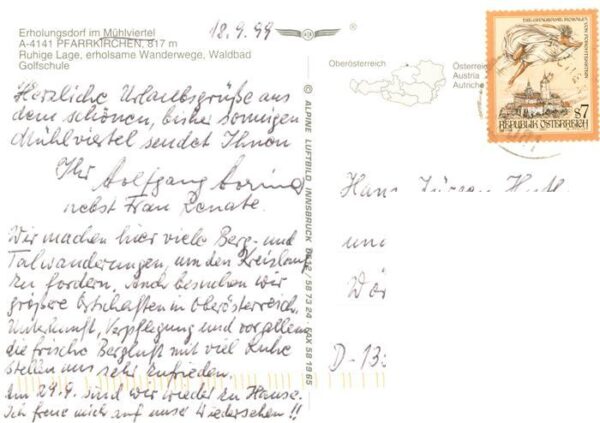 Erholungsdorf im Mühlviertel
A-4141 PFARRKIRCHEN, 817 m
Ruhige Lage, erholsame Wanderwege, Waldbad
Golfschule
18.9.99
®
Oberösterreich
Österreich
Austria
Autriche
DIE GRAUSAME ROSALIA
VON FORCHTENSTEIN
S7
REPUBLIK ÖSTERREICH
Herzliche Urlaubsgrüße aus
dem schönen, bisher sonnigen
Mühlviertel sendet Ihnen
Ihr Wolfgang
nebst Frau Renate.
Wir machen hier viele Berg- und
Talwanderungen, um den Kreislauf
zu fordern. Auch besuchen wir
größere Ortschaften in Oberösterreich.
Unterkunft, Verpflegung und vor allem
die frische Bergluft mit viel Ruhe
stellen uns sehr zufrieden.
Am 24.9. sind wir wieder zu Hause.
Ich freue mich auf unser Wiedersehen!!
© ALPINE LUFTBILD INNSBRUCK 0512/58 73 24 FAX 58 19 65
Hans Jürgen
und
D-13